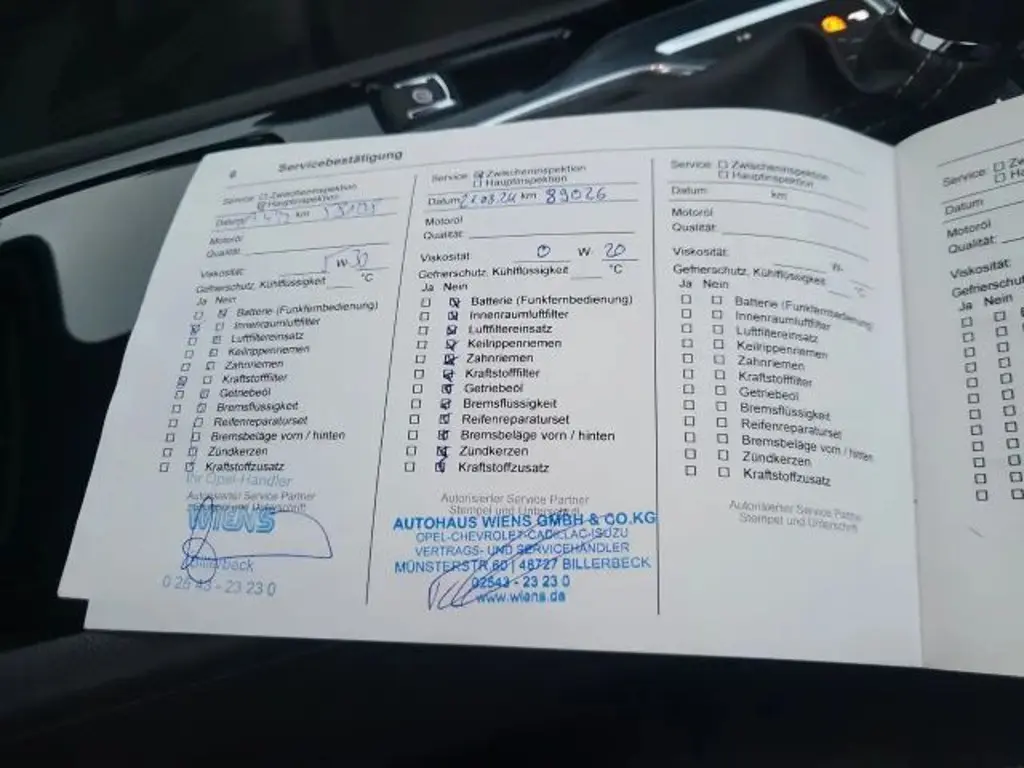 6 Servicebestätigung
Service: Zwischeninspektion
Hauptinspektion
Datum km
Motoröl
Qualität:
Viskosität: W 30
Gefrierschutz, Kühlflüssigkeit °C
Ja Nein
Batterie (Funkfernbedienung)
Innenraumluftfilter
Luftfiltereinsatz
Keilrippenriemen
Zahnriemen
Kraftstofffilter
Getriebeöl
Bremsflüssigkeit
Reifenreparaturset
Bremsbeläge vorn / hinten
Zündkerzen
Kraftstoffzusatz
Ihr Opel-Händler
Autorisierter Service Partner
WIENS
Billerbeck
0 25 43 - 23 23 0
Service: Zwischeninspektion
Hauptinspektion
Datum 03.24 km 89026
Motoröl
Qualität:
Viskosität: 0 W- 20
Gefrierschutz, Kühlflüssigkeit °C
Ja Nein
Batterie (Funkfernbedienung)
Innenraumluftfilter
Luftfiltereinsatz
Keilrippenriemen
Zahnriemen
Kraftstofffilter
Getriebeöl
Bremsflüssigkeit
Reifenreparaturset
Bremsbeläge vorn / hinten
Zündkerzen
Kraftstoffzusatz
Autorisierter Service Partner
Stempel und Unterschrift
AUTOHAUS WIENS GMBH & CO.KG
OPEL-CHEVROLET-CADILLAC-ISUZU
VERTRAGS- UND SERVICEHÄNDLER
MÜNSTERSTR.60 | 48727 BILLERBECK
02543 - 23 23 0
www.wiens.de
Service: Zwischeninspektion
Hauptinspektion
Datum km
Motoröl
Qualität:
Viskosität: W-
Gefrierschutz, Kühlflüssigkeit °C
Ja Nein
Batterie (Funkfernbedienung)
Innenraumluftfilter
Luftfiltereinsatz
Keilrippenriemen
Zahnriemen
Kraftstofffilter
Getriebeöl
Bremsflüssigkeit
Reifenreparaturset
Bremsbeläge vorn / hinten
Zündkerzen
Kraftstoffzusatz
Autorisierter Service Partner
Stempel und Unterschrift
Service:
Datum
Motoröl
Qualität:
Viskosität:
Ja Nein